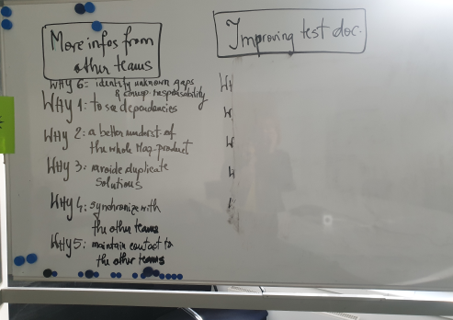 More infos from
other teams
WHY 6: identify unknown gaps
& responsability
WHY 1: to see dependencies
WHY 2: a better underst. of
the whole Map-product
WHY 3: avoide duplicate
solutions
WHY 4: synchronize with
the other teams
WHY 5: maintain contact to
the other teams
Improving test doc.